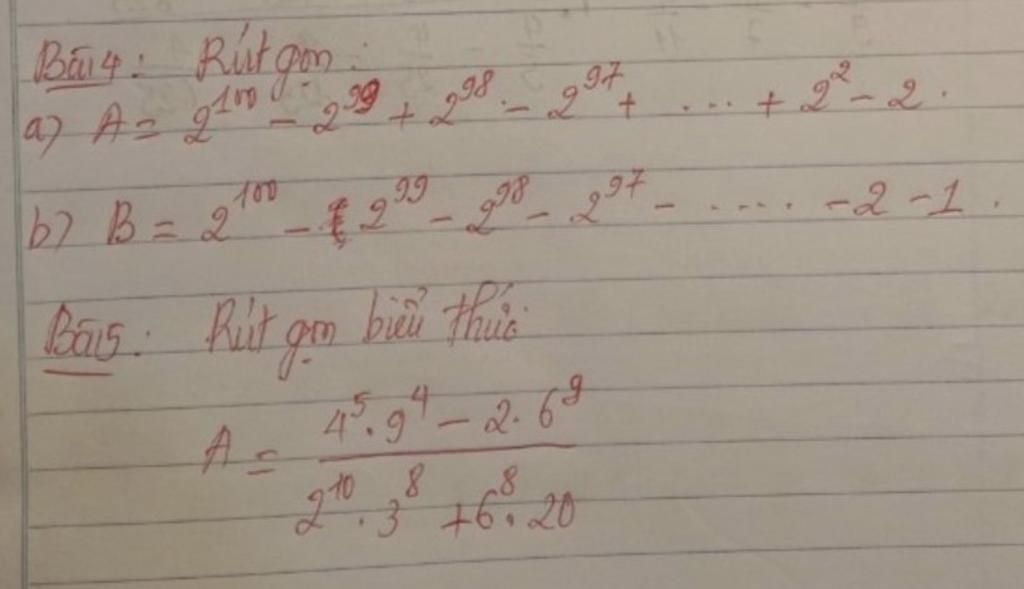 Bài 4: Rút gọn:
a) A = 2^100 - 2^99 + 2^98 - 2^97 + ... + 2^2 - 2.
b) B = 2^100 - 2^99 - 2^98 - 2^97 - ..... - 2 - 1.
Bài 5: Rút gọn biểu thức:
A = (4^5 . 9^4 - 2. 6^9) / (2^10 . 3^8 + 6^8 . 20)